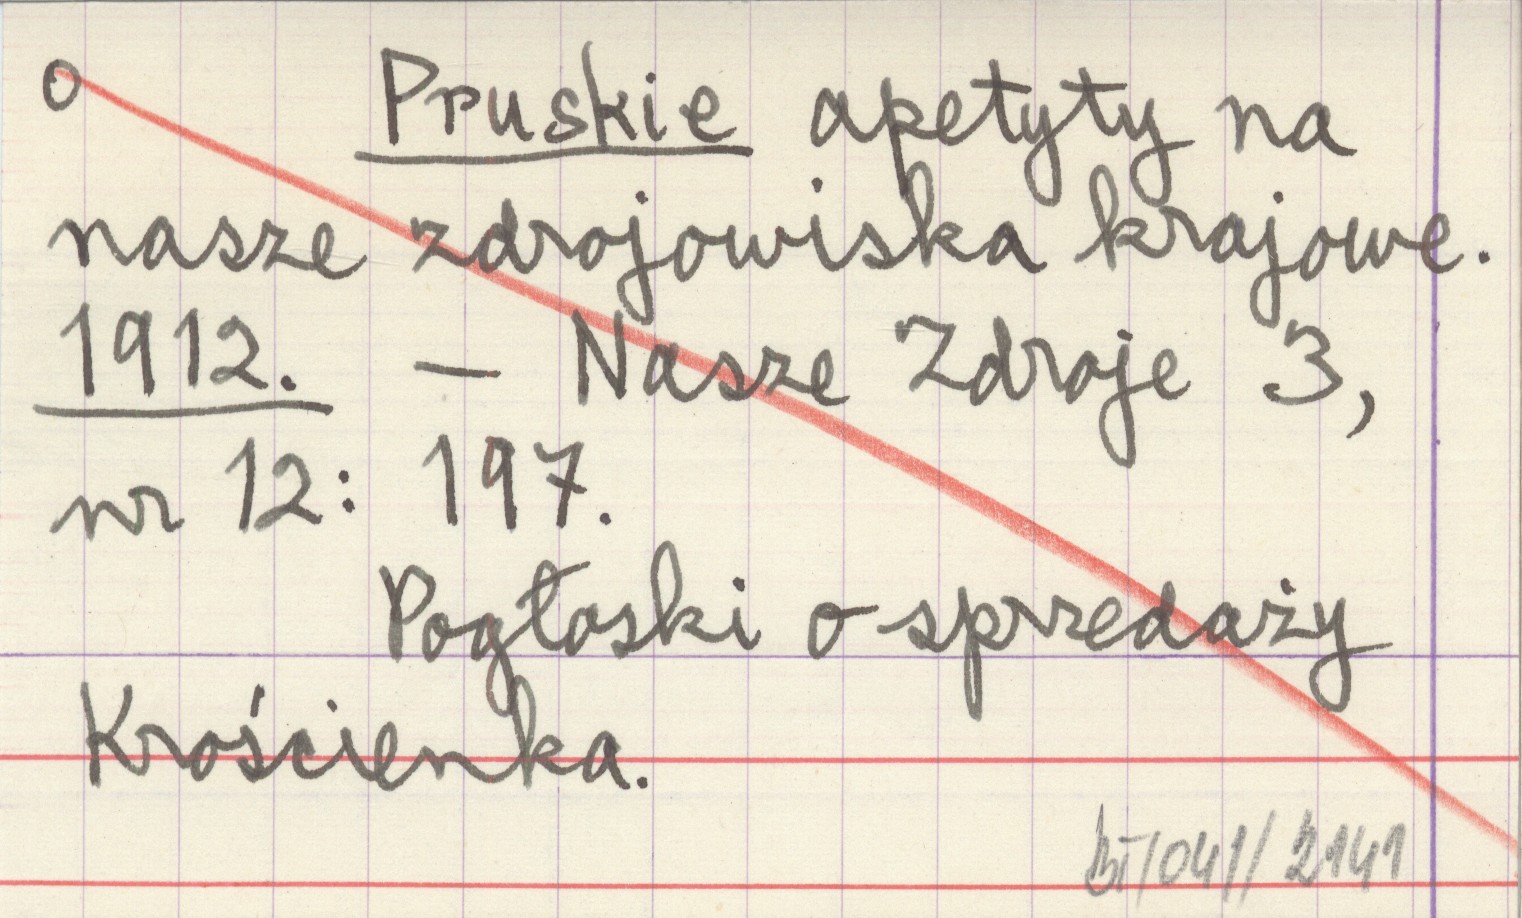 O Pruskie apetyty na
nasze zdrojowiska krajowe.
1912. – Nasze Zdroje 3,
nr 12: 197.
Pogłoski o sprzedaży
Krościenka.
BI/041/2141